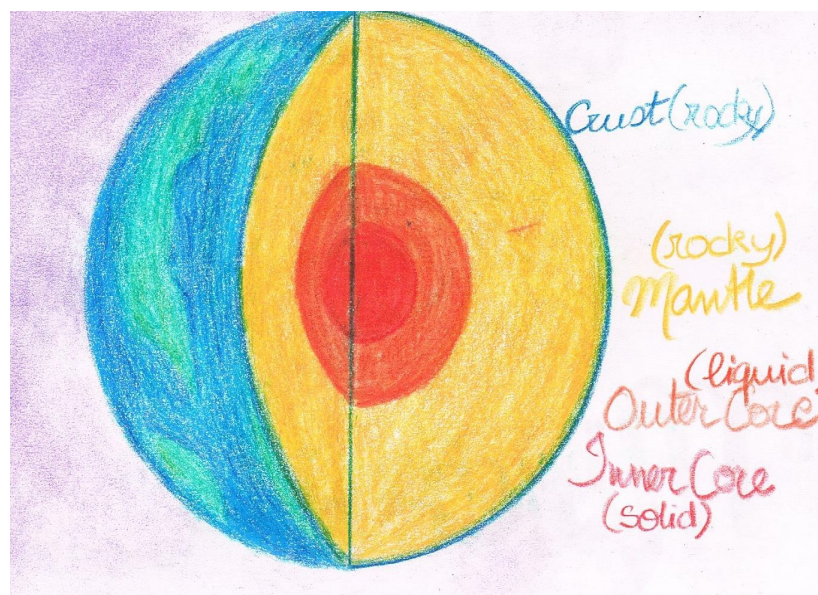 Crust (rocky)
(rocky)
Mantle
(liquid
Outer Core
Inner Core
(solid)